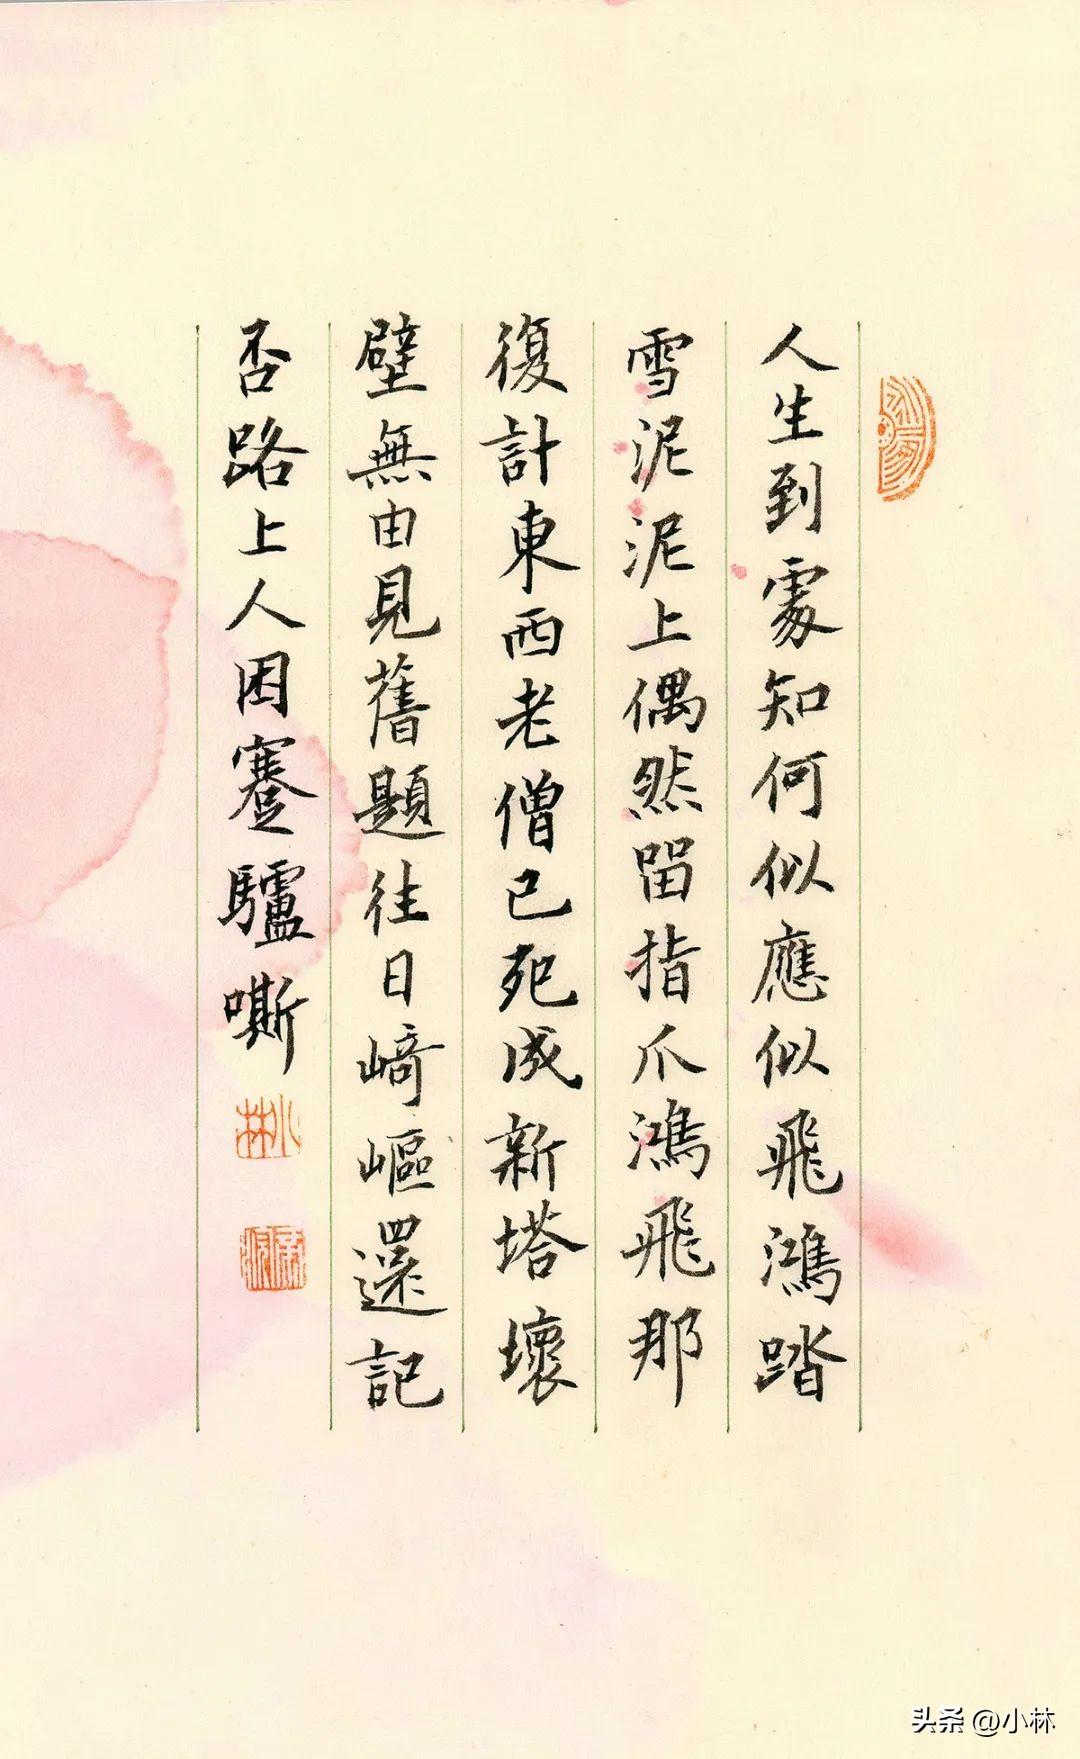 人生到處知何似應似飛鴻踏
雪泥泥上偶然留指爪鴻飛那
復計東西老僧已死成新塔壞
壁無由見舊題往日崎嶇還記
否路上人困蹇驢嘶
小林
头条 @小林